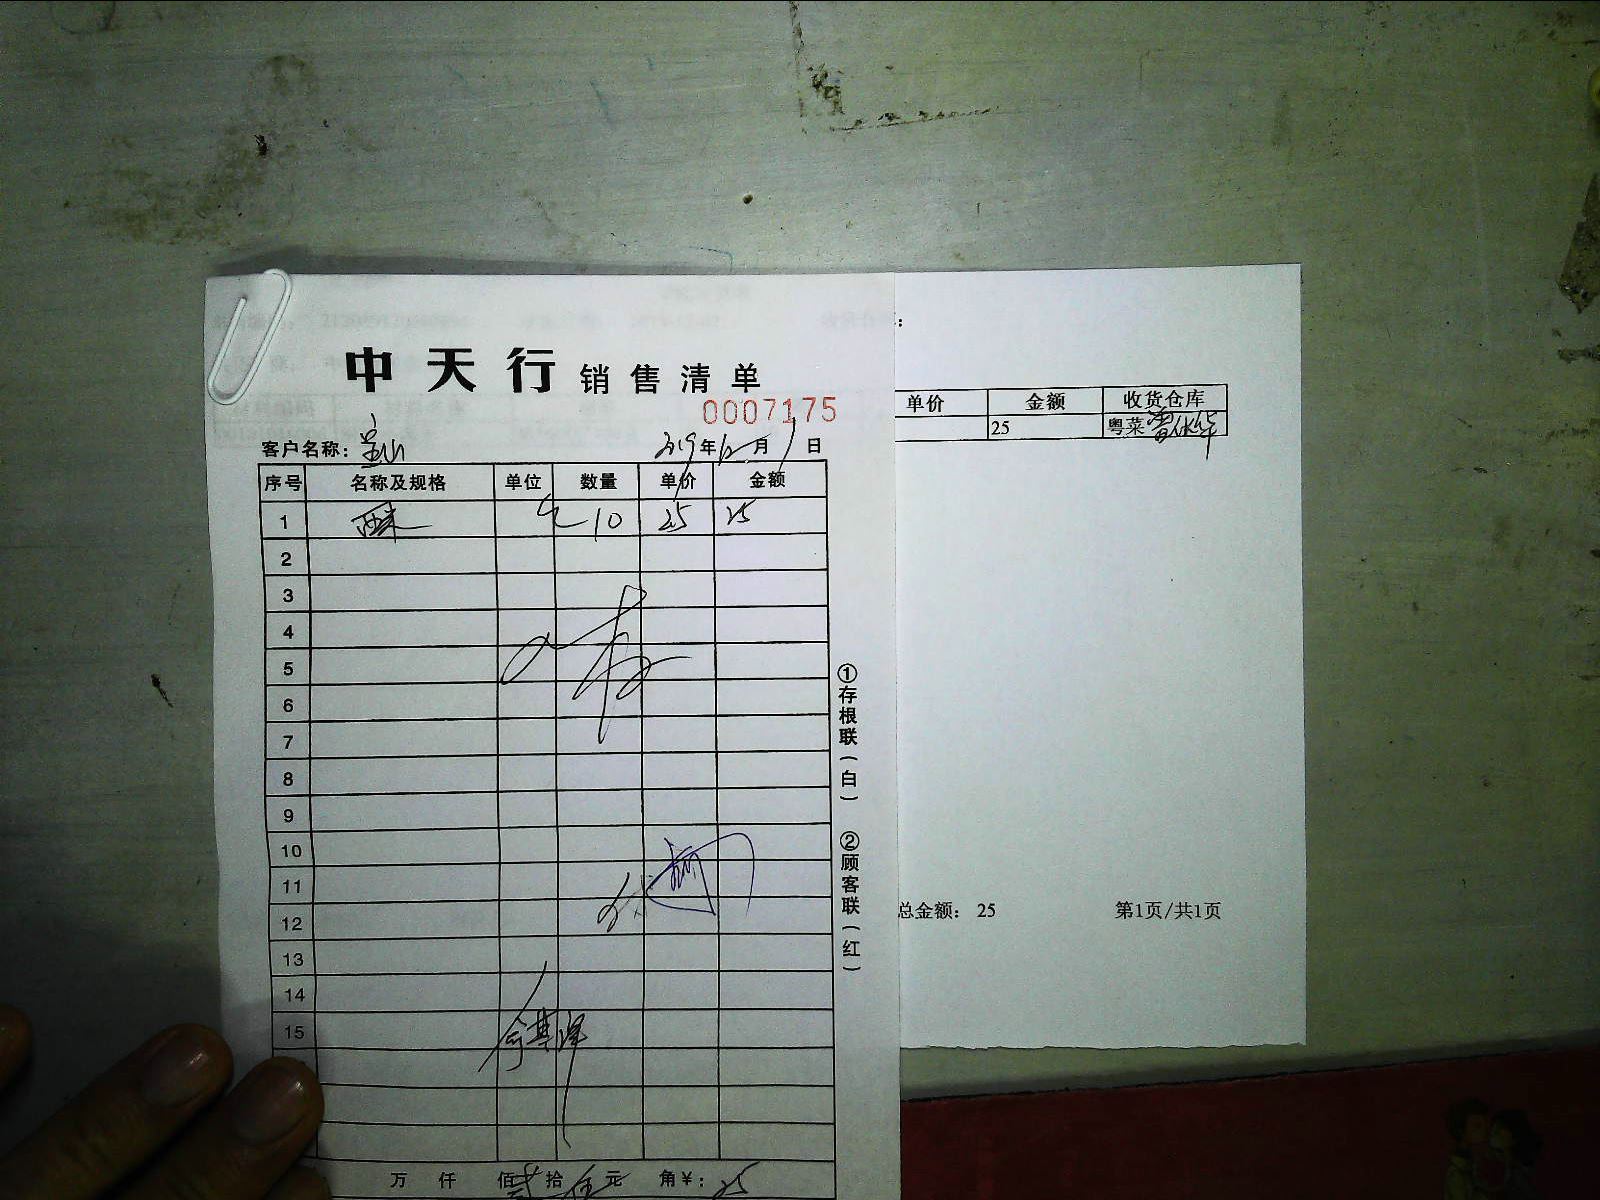 中天行 销售清单
0007175
客户名称: 宝山 2019年12月1日
序号 名称及规格 单位 数量 单价 金额
1 西米 10 25 25
2
3
4
5
6
7
8
9
10
11
12
13
14
15
万 仟 佰 贰拾伍元 角¥: 25
①存根联(白)
②顾客联(红)
单价 金额 收货仓库
25 粤菜
总金额: 25 第1页/共1页